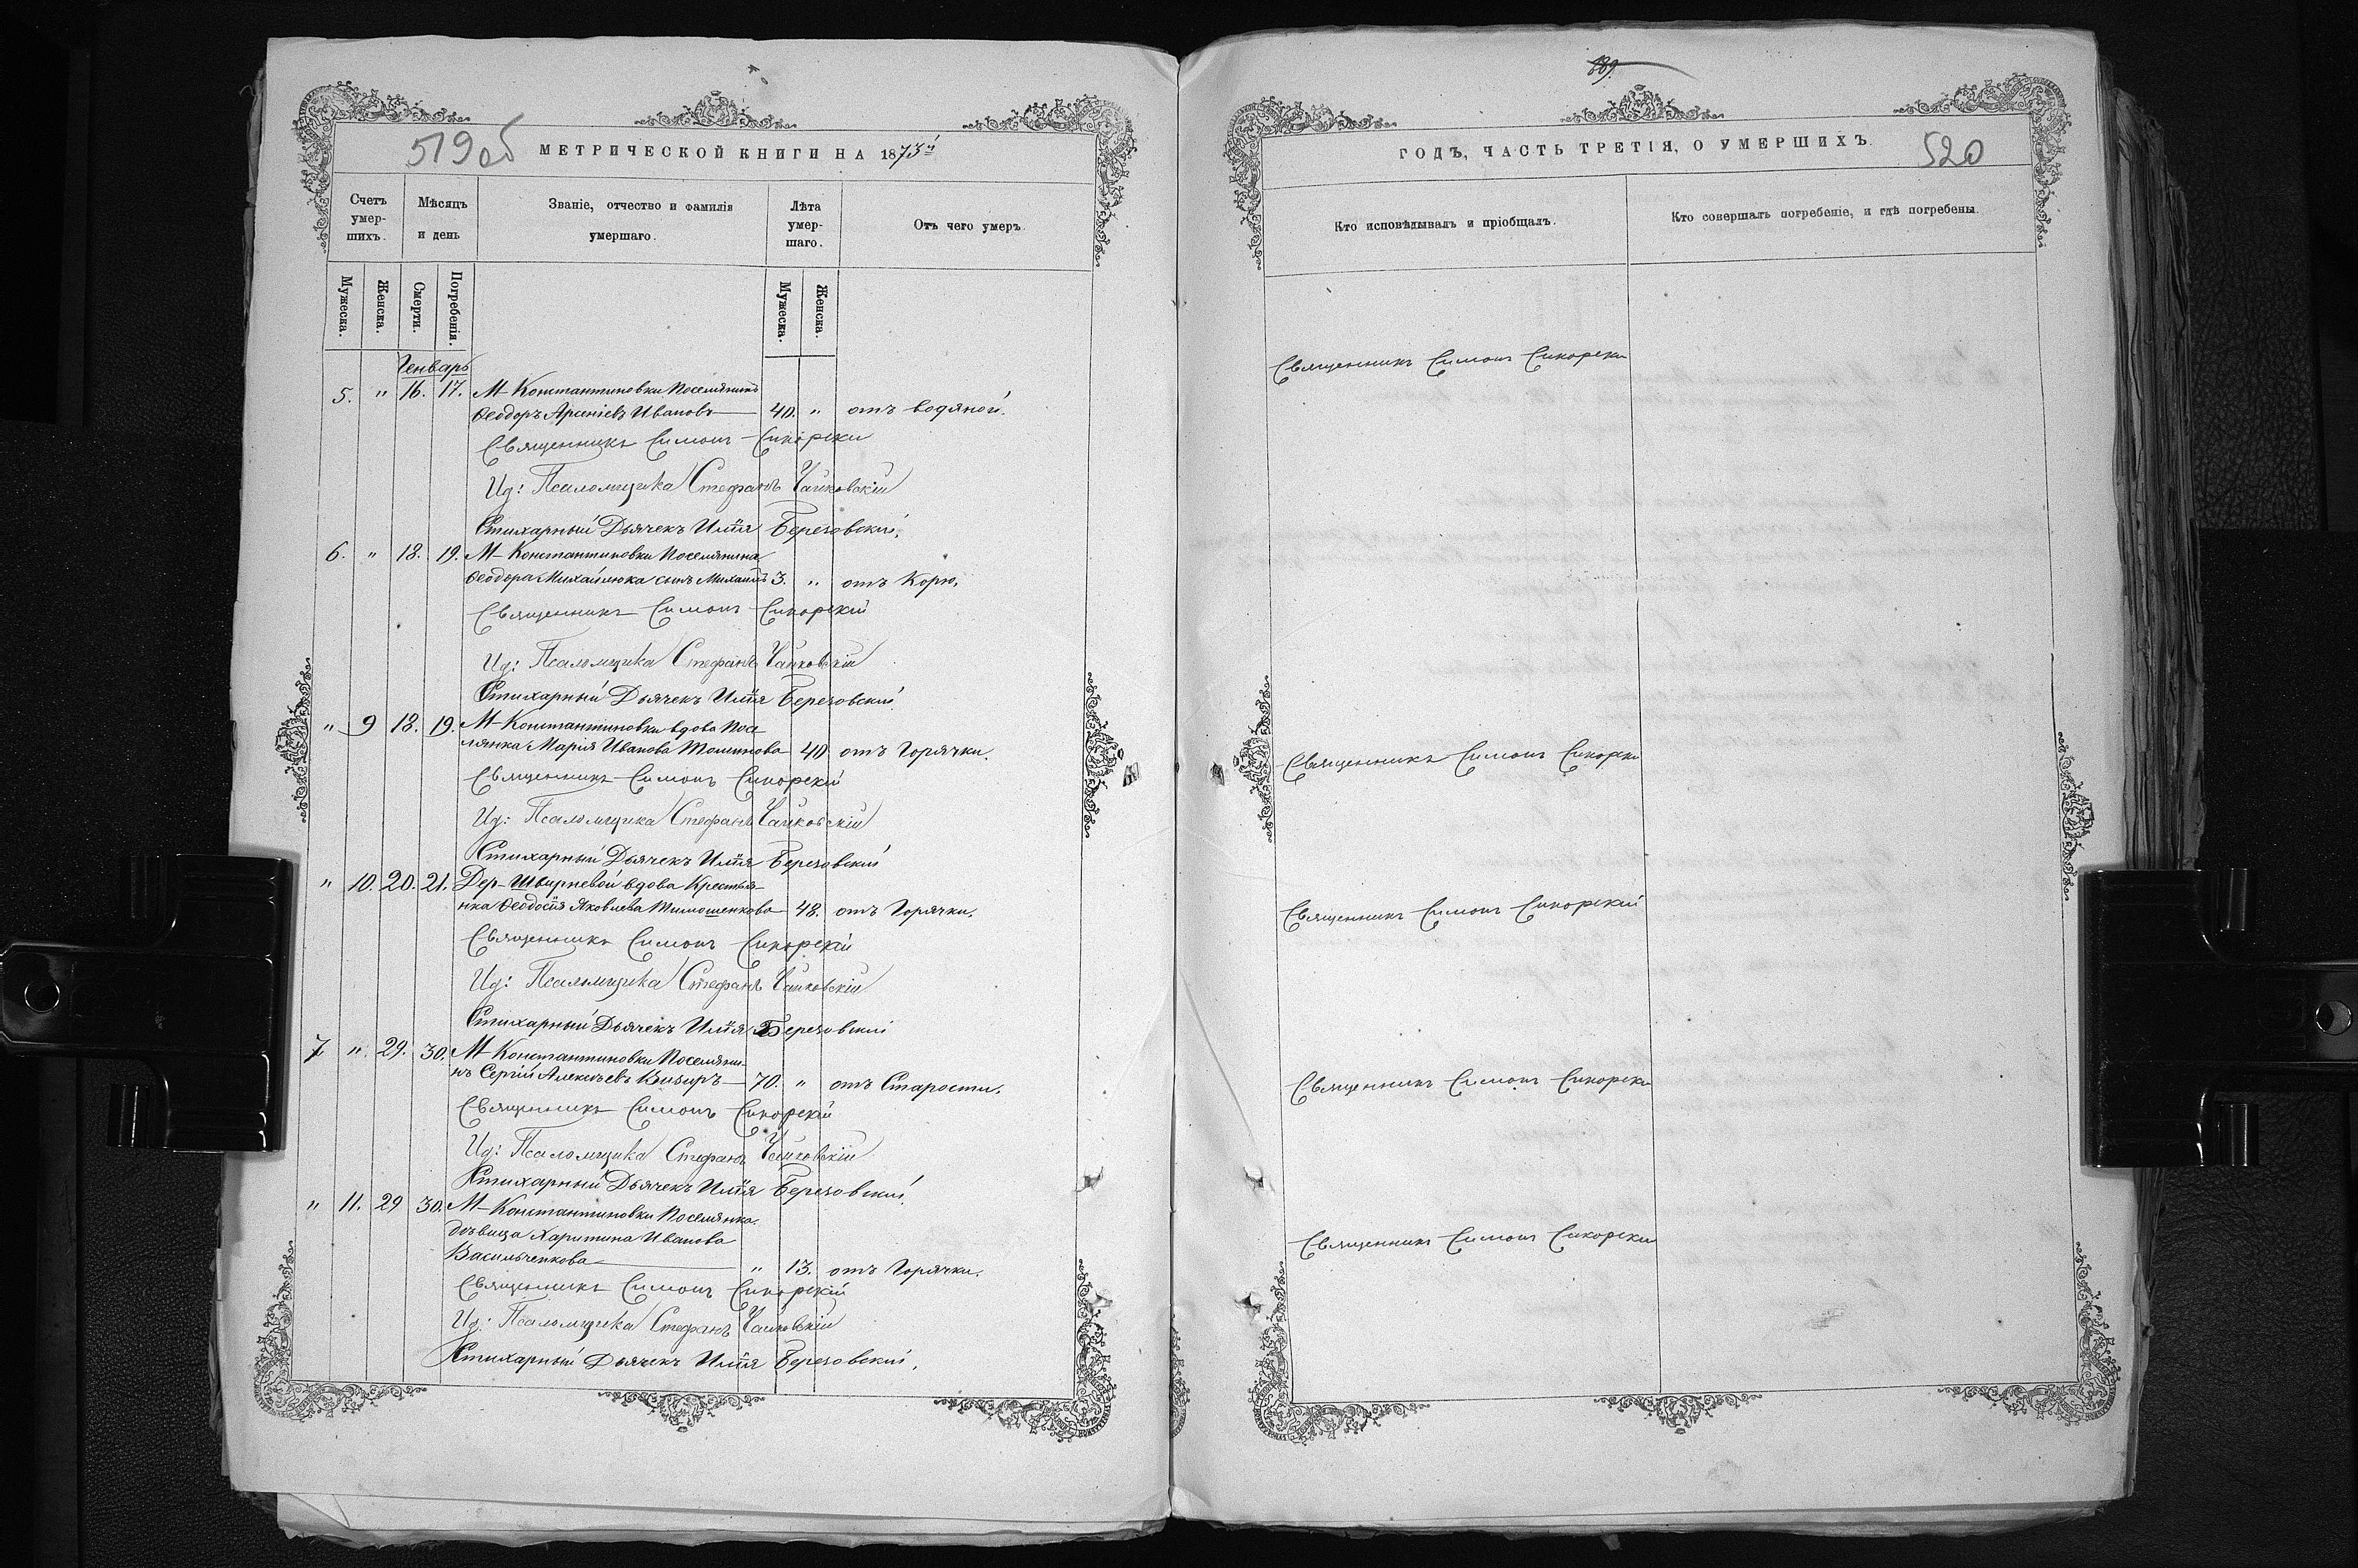 519 об
МЕТРИЧЕСКОЙ КНИГИ НА 1873й
Счетъ умер-шихъ.
Мѣсяцъ и день
Званіе, отчество и фамилія умершаго.
Лѣта умер-шаго.
Отъ чего умеръ.
Мужеска.
Женска.
Смерти.
Погребенія.
Мужеска.
Женска.
Генварь
5. " 16. 17. М-Константиновки Поселянинъ
Ѳеодоръ Арсеніевъ Ивановъ 40. " отъ водяной.
Священникъ Симонъ Сикорски
Ид: Псаломщика Стефанъ Чайковскій
Стихарный Дьячекъ Илія Березовскій.
6. " 18. 19. М-Константиновки Поселянина
Ѳеодора Михайлюка сынъ Михаилъ 3. " отъ Корю.
Священникъ Симонъ Сикорскій
Ид: Псаломщика Стефанъ Чайковскій
Стихарный Дьячекъ Илія Березовскій
" 9 18. 19. М-Константиновки вдова Посе
лянка Марія Иванова 40 отъ Горячки.
Священникъ Симонъ Сикорскій
Ид: Псаломщика Стефанъ Чайковскій
Стихарный Дьячекъ Илія Березовскій
" 10. 20. 21. Дер-Швырневой вдова Крестья-
нка Ѳеодосія Яковлева Тимошенкова 48. отъ Горячки.
Священникъ Симонъ Сикорскій
Ид: Псаломщика Стефанъ Чайковскій
Стихарный Дьячекъ Илія Березовскій
7 ". 29. 30. М-Константиновки Поселяни-
нъ Сергій Алексѣевъ 70. " отъ Старости.
Священникъ Симонъ Сикорскій
Ид: Псаломщика Стефанъ Чайковскій
Стихарный Дьячекъ Илія Березовскій.
" 11. 29 30. М-Константиновки Поселянка
дѣвица Харитина Иванова
Васильченкова " 13. отъ Горячки.
Священникъ Симонъ Сикорскій
Ид: Псаломщика Стефанъ Чайковскій
Стихарный Дьячекъ Илія Березовскій.
889.
ГОДЪ, ЧАСТЬ ТРЕТІЯ, О УМЕРШИХЪ.
520
Кто исповѣдывалъ и пріобщалъ.
Кто совершалъ погребеніе, и гдѣ погребены.
Священникъ Симонъ Сикорски
Священникъ Симонъ Сикорски
Священникъ Симонъ Сикорскій
Священникъ Симонъ Сикорски
Священникъ Симонъ Сикорски